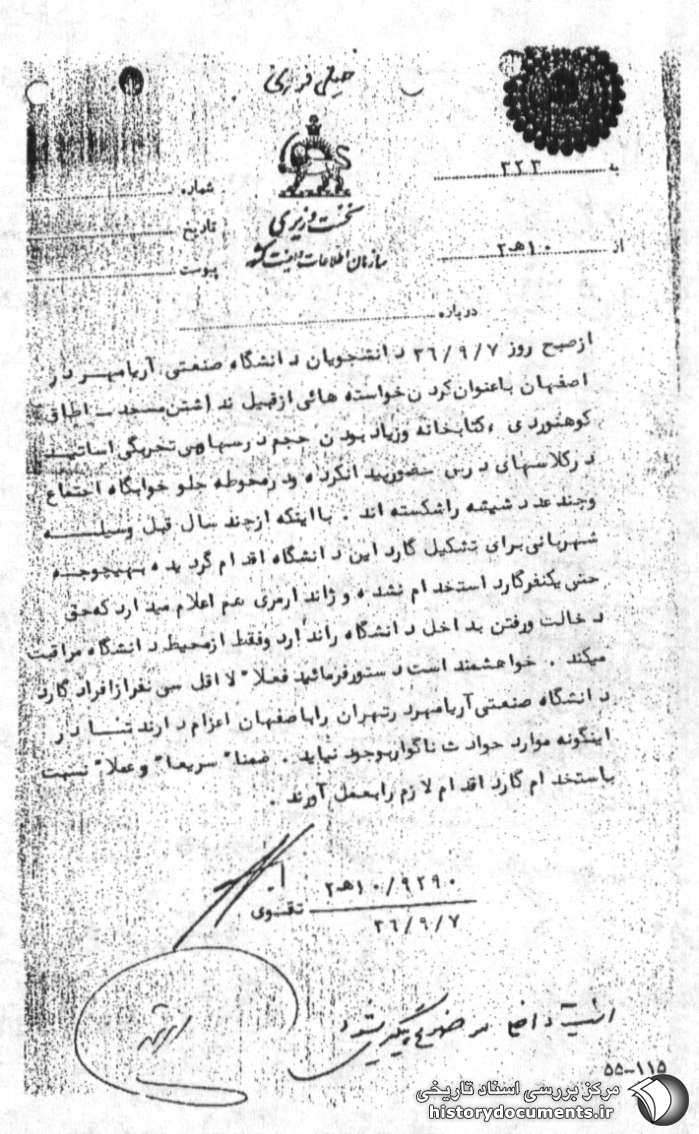 خیلی فوری
به ۳۲۳
شماره
نخست وزیری
تاریخ
سازمان اطلاعات و امنیت کشور
از ۱۰ هـ ۲
پیوست
درباره
ازصبح روز ۳۶/۹/۷ دانشجویان دانشگاه صنعتی آریامهر در
اصفهان باعنوان کردن خواسته هائی ازقبیل نداشتن مسجد ـ اطاق
کوهنوردی ، کتابخانه وزیاد بودن حجم درسها وبی تحریگی اساتید
درکلاسهای درس حضورپیدا نکرده ودرمحوطه جلو خوابگاه اجتماع
وچند عدد شیشه راشکسته اند . بااینکه ازچند سال قبل وسیله
شهربانی برای تشکیل گارد این دانشگاه اقدام گردیده بهیچوجه
حتی یکنفرگارد استخدام نشده و ژاندارمری هم اعلام میدارد که حق
دخالت ورفتن بداخل دانشگاه راندارد وفقط ازمحیط دانشگاه مراقبت
میکند . خواهشمند است دستورفرمائید فعلا" لااقل سی نفرازافراد گارد
دانشگاه صنعتی آریامهر تهران رابه اصفهان اعزام دارند تا در
اینگونه موارد حوادث ناگواربوجود نیاید . ضمنا" سریعا" وعملا" نسبت
باستخدام گارد اقدام لازم رابعمل آورند .
۹۲۹۰/۱۰ هـ ۲
تقوی
۳۶/۹/۷
پیگیری شود
۵۵-۱۱۵
مرکز بررسی اسناد تاریخی
historydocuments.ir